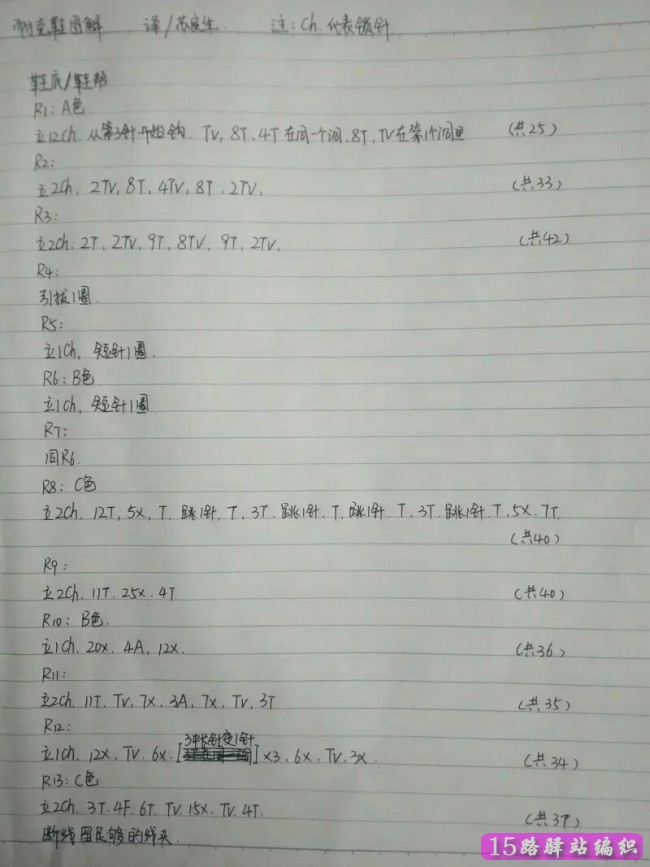 耐克鞋图解 译/苏良生 注:Ch.代表锁针
鞋底/鞋帮
R1: A色.
立12Ch. 从第3针开始钩. TV, 8T. 4T在同一个洞. 8T. TV在第1个洞里 (共25)
R2:
立2Ch. 2TV, 8T, 4TV, 8T. 2TV. (共33)
R3:
立2Ch. 2T, 2TV, 9T, 8TV, 9T, 2TV. (共42)
R4:
引拔1圈.
R5:
立1Ch, 短针1圈.
R6: B色
立1Ch, 短针1圈
R7:
同R6.
R8: C色
立2Ch. 12T, 5X, T. 跳1针, T, 3T. 跳1针. T, 跳1针. T, 3T. 跳1针. T, 5X. 7T
(共40)
R9:
立2Ch. 11T. 25X. 4T (共40)
R10: B色.
立1Ch. 20X. 4A, 12X. (共36)
R11:
立2Ch. 11T. TV, 7X. 3A, 7X, TV, 3T (共35)
R12:
立1Ch, 12X, TV. 6X. [3中长针变1针]×3. 6X. TV. 3X. (共34)
R13: C色
立2Ch. 3T. 4F. 6T. TV. 15X. TV. 4T. (共37)
断线留足够的线头.
15路驿站编织